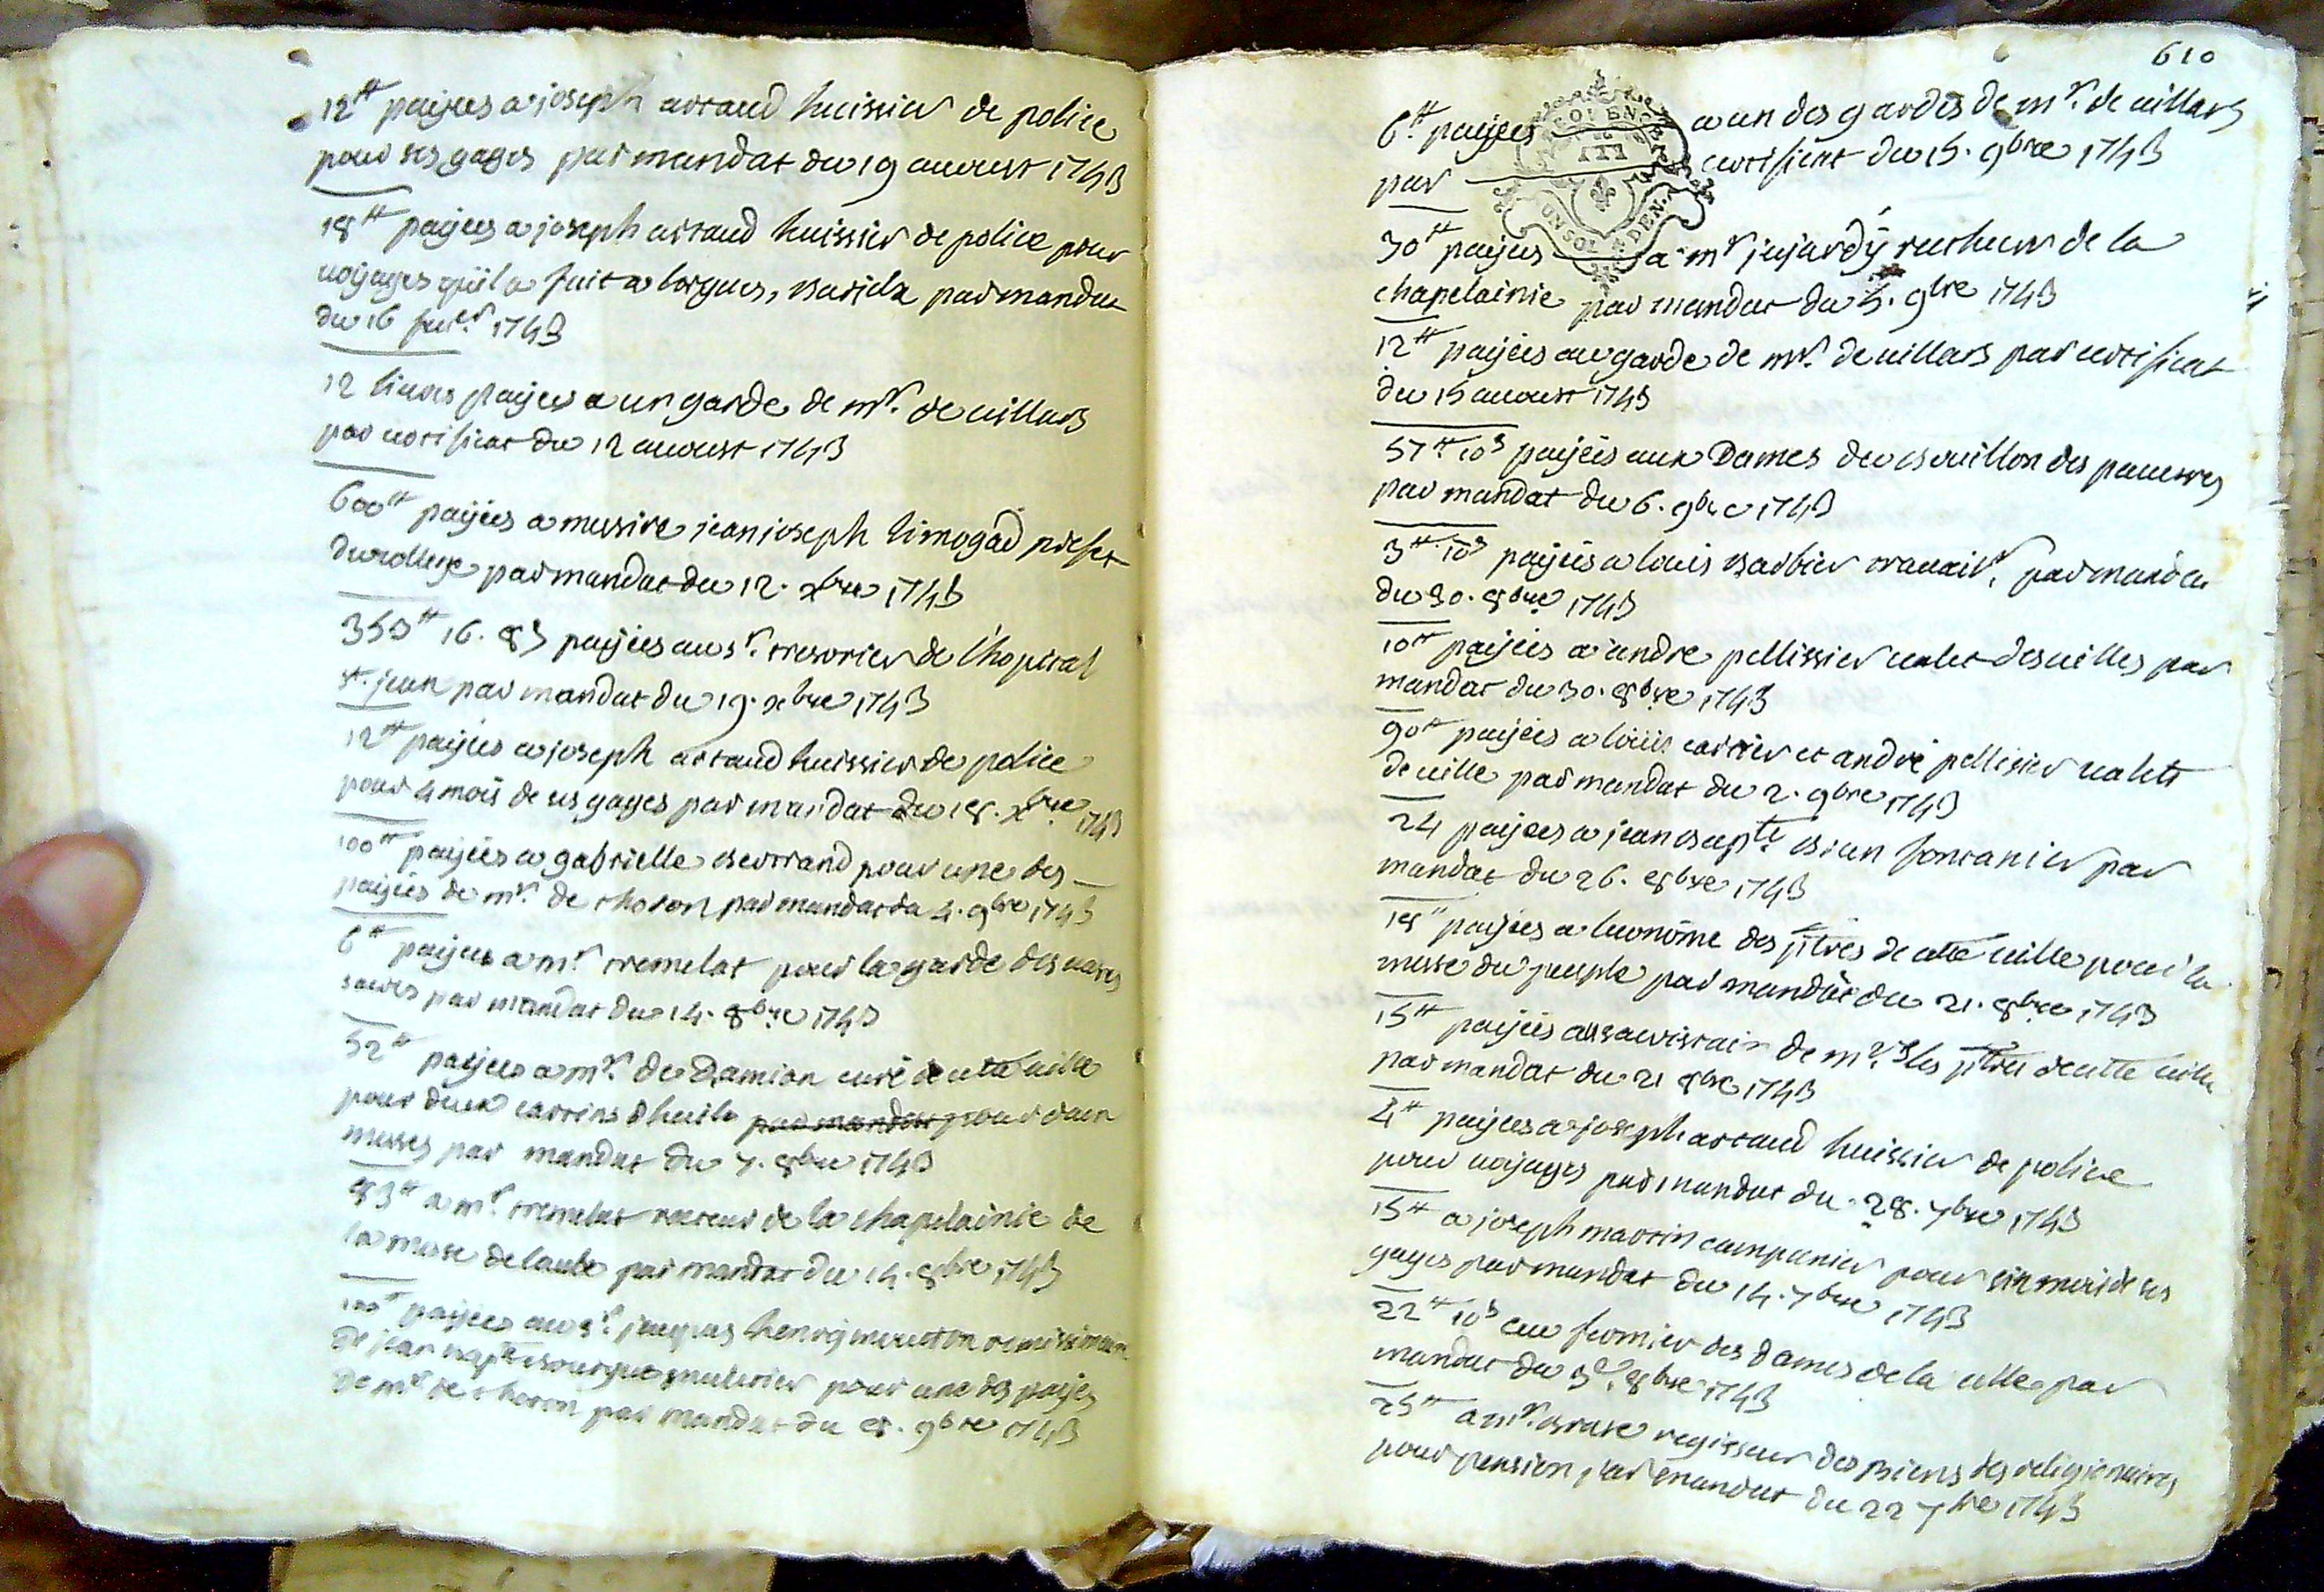 12tt payees a joseph artaud huissier de police
pour ses gages par mandat du 19 auoust 1743
18tt payees a joseph artaud huissier de police pour
uoyages quil a fait a lorgues, par mandat
du 16 1743
12 liures payees a un garde de mr. de uillars
par certificat du 12 auoust 1743
600tt payees a messire jean joseph prefet
du college par mandat du 12. xbre 1743
16. 8s payees au sr. tresorier de l'hopital
st. jean par mandat du 19. xbre 1743
12tt payees a joseph artaud huissier de police
pour 4 mois de ses gages par mandat du 18. xbre 1743
100tt payees a gabrielle bertrand pour une des
payees de mr. de thoron par mandat du 4. 9bre 1743
6tt payees a mr. tremelat pour la garde des uases
sacres par mandat du 14. 8bre 1743
52tt payees a mr. de Damian curé de cete uille
pour deux d'huile par mandat pour
messes par mandat du 7. 8bre 1743
83tt a mr. tremelat recteur de la chapelainie de
la messe de laube par mandat du 14. 8bre 1743
100tt payees au sr. jacques henry mouton
de jean bapte pour une des payes
de mr de thoron par mandat du 8. 9bre 1743
610
6tt payees a un des gardes de mr. de uillars
par certificat du 15. 9bre 1743
30tt payees a mr jujardy recteur de la
chapelainie par mandat du 5. 9bre 1743
12tt payees au garde de mr. de uillars par certificat
du 15 auoust 1743
57tt 10s payees aux Dames du bouillon des pauures
par mandat du 6. 9bre 1743
3tt 10s payees a louis barbier trauailr. par mandat
du 30. 8bre 1743
10tt payees a andre pellissier ualet des uilles par
mandat du 30. 8bre 1743
90tt payees a louis cartier et andré pellissier ualets
de uille par mandat du 2. 9bre 1743
24 payees a jean bapte brun fontanier par
mandat du 26. 8bre 1743
18tt payees a leconome des ptres de cette uille pour la
messe du peuple par mandat du 21. 8bre 1743
15tt payees au sacristain de mrs les ptres de cette uille
par mandat du 21 8bre 1743
4tt payees a joseph artaud huissier de police
pour uoyages par mandat du 28. 7bre 1743
15tt a joseph martin campanier pour six mois de ses
gages par mandat du 14. 7bre 1743
22tt 10s au fermier des dames de la celle par
mandat du 3e. 8bre 1743
25tt a mr. brase regisseur des biens des religionaires
pour pension par mandat du 22 7bre 1743